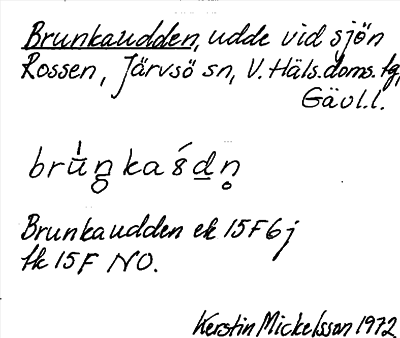 Brunkaudden, udde vid sjön
Rossen, Järvsö sn, V. Häls. doms. tg,
Gävl.l.
Brunkaudden ek 15F6j
tk 15F NO.
Kerstin Mickelsson 1972